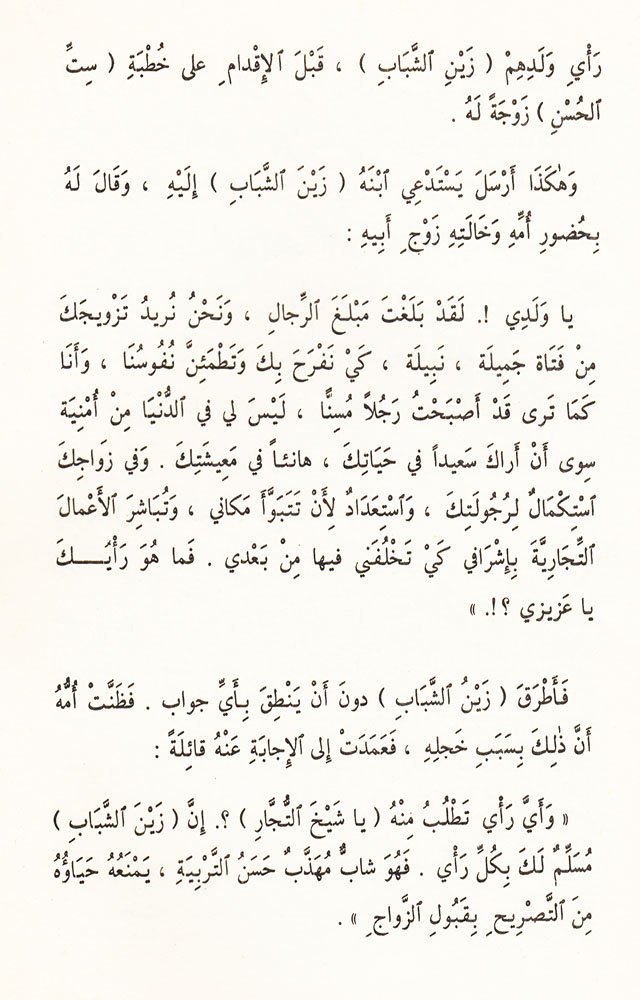 رَأْيِ وَلَدِهِمْ ( زَيْنِ ٱلشَّبَابِ ) ، قَبْلَ ٱلإِقْدامِ على خُطْبَةِ ( سِتِّ
ٱلحُسْنِ ) زَوْجَةً لَهُ .
وَهٰكَذَا أَرْسَلَ يَسْتَدْعِي ٱبْنَهُ ( زَيْنَ ٱلشَّبَابِ ) إِلَيْهِ ، وَقَالَ لَهُ
بِحُضورِ أُمِّهِ وَخَالَتِهِ زَوْجِ أَبِيهِ :
يا وَلَدِي !. لَقَدْ بَلَغْتَ مَبْلَغَ ٱلرِّجالِ ، وَنَحْنُ نُريدُ تَزْويجَكَ
مِنْ فَتَاة جَمِيلَة ، نَبِيلَة ، كَيْ نَفْرَحَ بِكَ وَتَطْمَئِنَّ نُفُوسُنَا ، وَأَنَا
كَمَا تَرى قَدْ أَصْبَحْتُ رَجُلاً مُسِنًّا ، لَيْسَ لي في ٱلدُّنْيَا مِنْ أُمْنِيَة
سِوى أَنْ أَراكَ سَعيداً في حَيَاتِكَ ، هانئاً في مَعِيشَتِكَ . وَفي زَواجِكَ
ٱسْتِكْمَالٌ لِرُجُولَتِكَ ، وَٱسْتِعَدَادٌ لِأَنْ تَتَبَوَّأَ مَكاني ، وَتُبَاشِرَ ٱلأَعْمالَ
ٱلتِّجَارِيَّةَ بِإِشْرَافي كَيْ تَخْلُفَني فيها مِنْ بَعْدي . فَما هُوَ رَأْيُـــكَ
يا عَزيزي ؟!. »
فَأَطْرَقَ ( زَيْنُ ٱلشَّبَابِ ) دونَ أَنْ يَنْطِقَ بِأَيِّ جواب . فَظَنَّتْ أُمُّهُ
أَنَّ ذٰلِكَ بِسَبَبِ خَجلِهِ ، فَعَمَدَتْ إِلى ٱلإِجابَةِ عَنْهُ قائِلَةً :
« وَأَيَّ رَأْي تَطْلُبُ مِنْهُ ( يا شَيْخَ ٱلتُّجَّارِ ) ؟. إِنَّ ( زَيْنَ ٱلشَّبَابِ )
مُسَلِّمٌ لَكَ بِكُلِّ رَأْي . فَهُوَ شابٌّ مُهَذَّبٌ حَسَنُ ٱلتَّرْبِيَةِ ، يَمْنَعُهُ حَيَاؤُهُ
مِنَ ٱلتَّصْرِيحِ بِقَبُولِ ٱلزَّواجِ » .